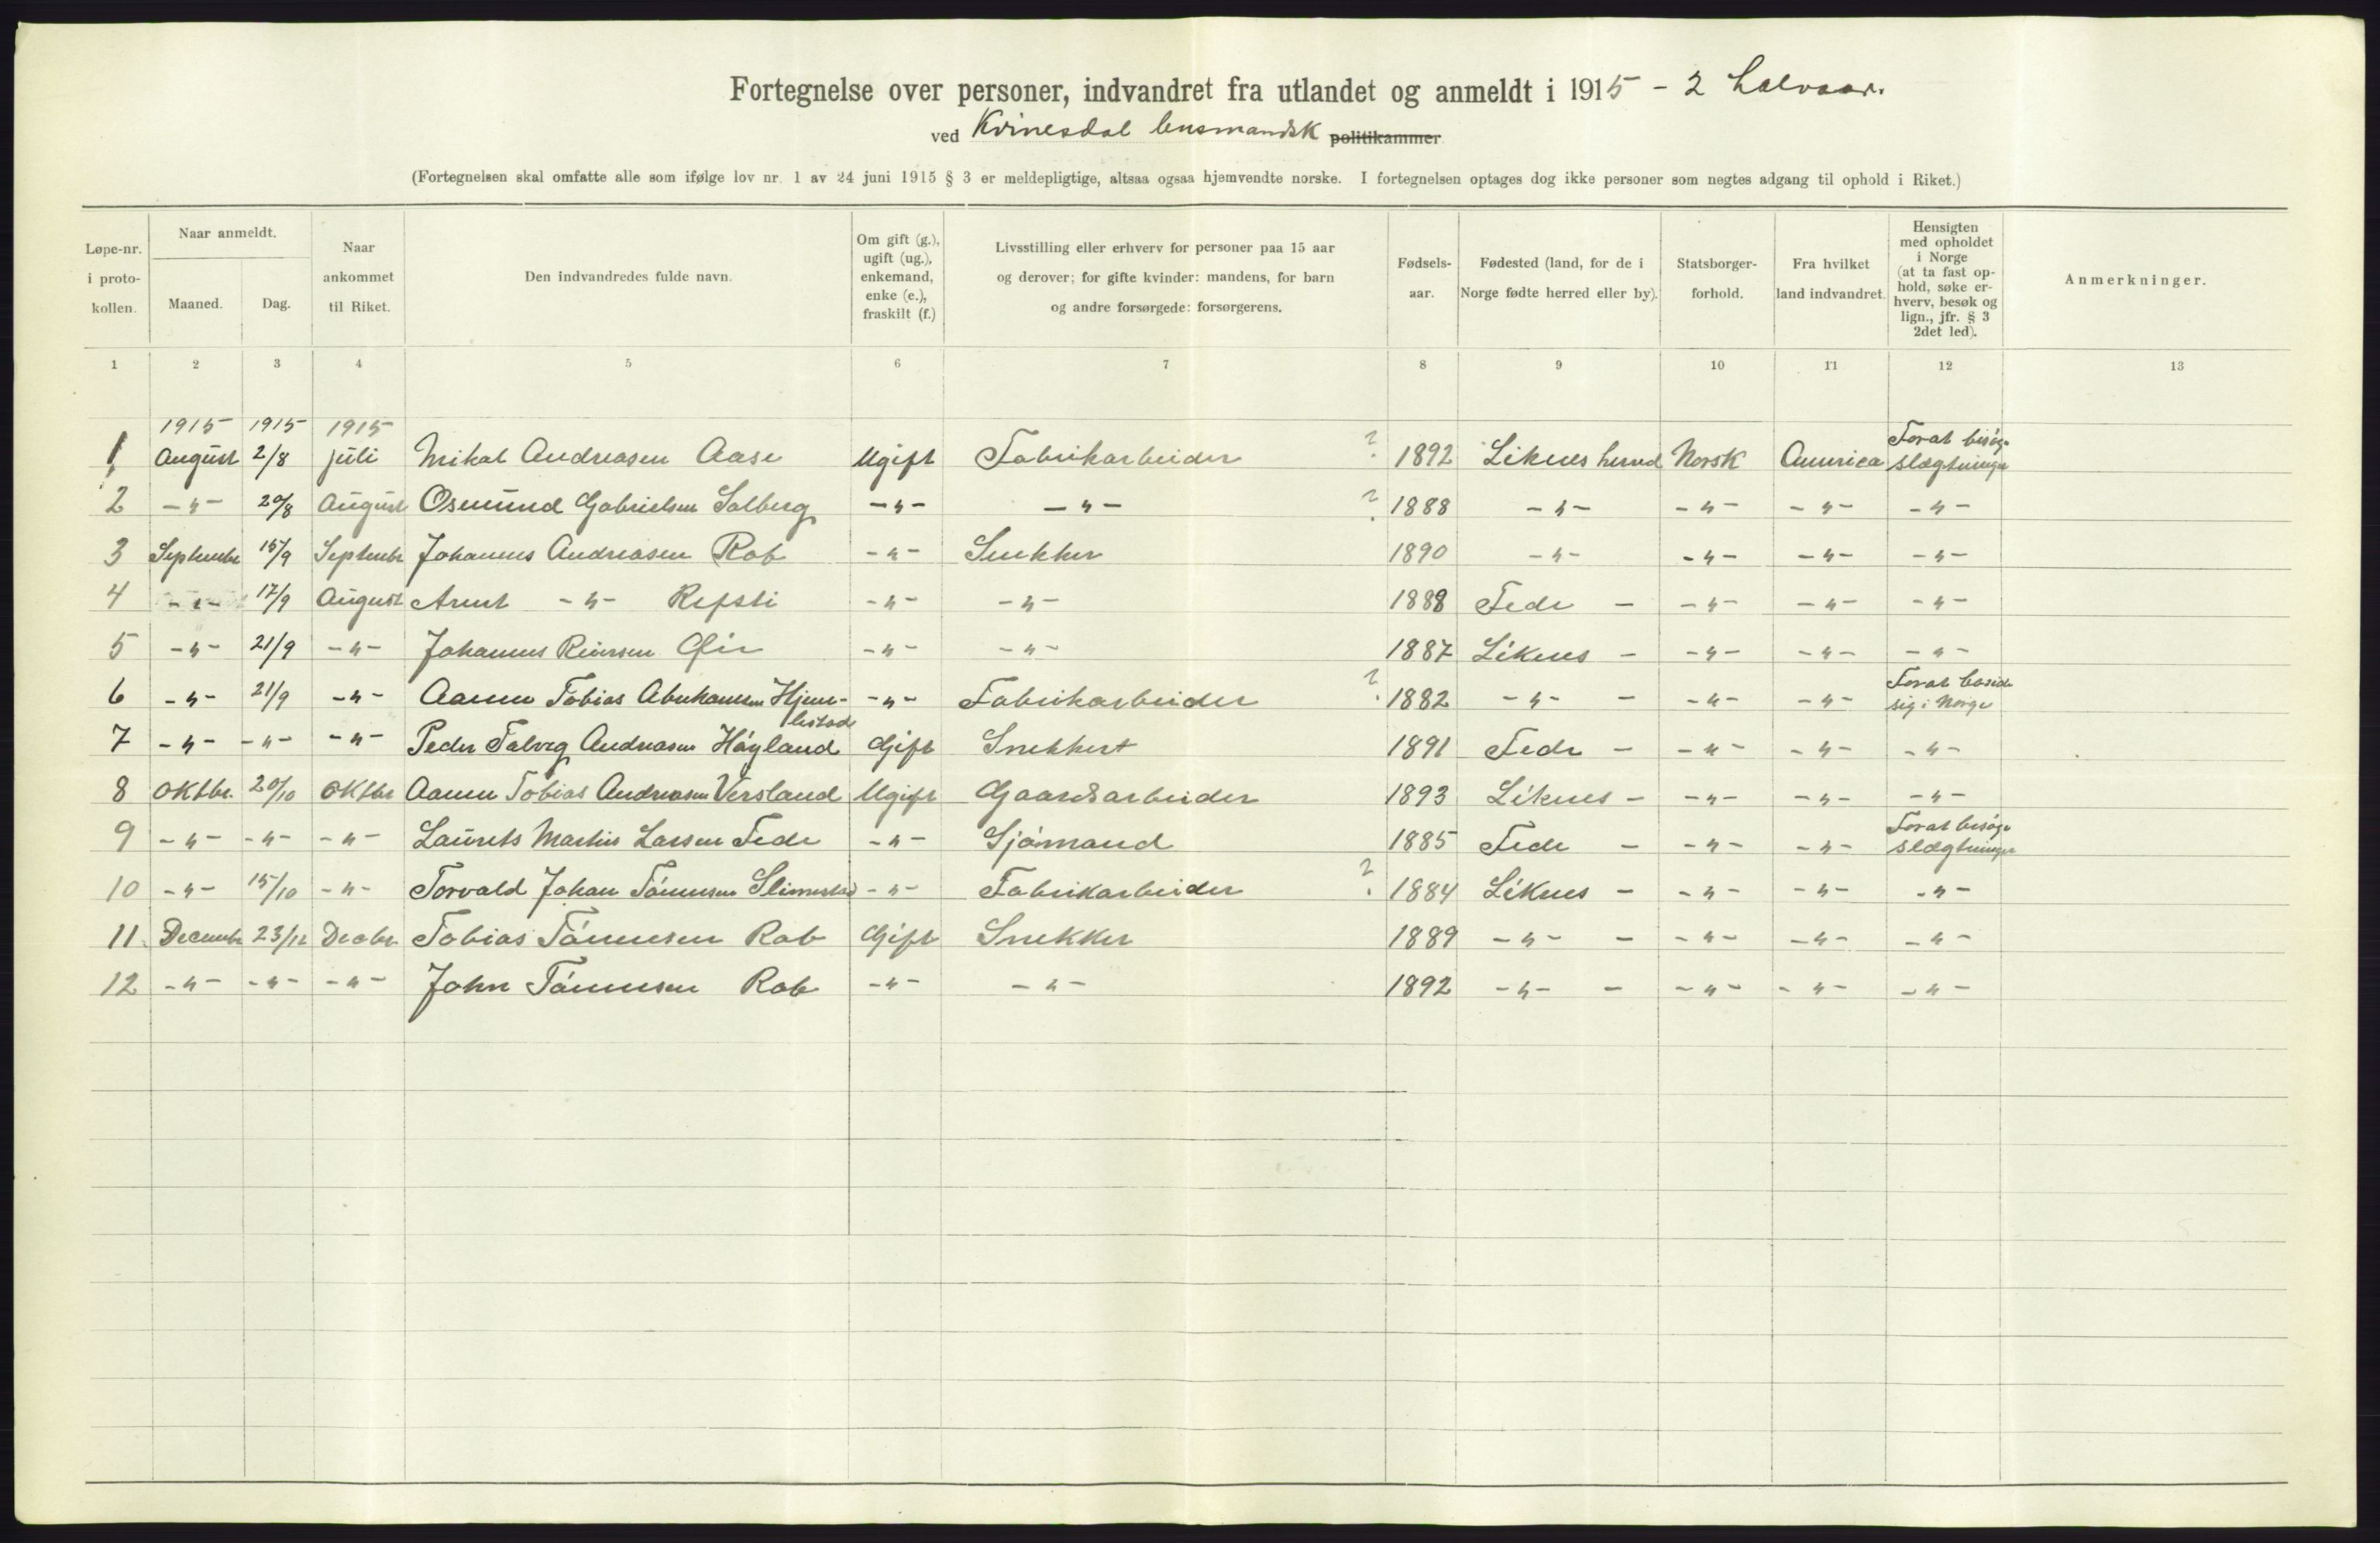 Fortegnelse over personer, indvandret fra utlandet og anmeldt i 1915 - 2 halvaar.
ved Kvinesdal lensmandsk politikammer
(Fortegnelsen skal omfatte alle som ifølge lov nr. 1 av 24 juni 1915 § 3 er meldepligtige, altsaa ogsaa hjemvendte norske. I fortegnelsen optages dog ikke personer som negtes adgang til ophold i Riket.)
Løpe-nr. i proto-kollen.
Naar anmeldt.
Maaned.
Dag.
Naar ankommet til Riket.
Den indvandredes fulde navn.
Om gift (g.), ugift (ug.), enkemand, enke (e.), fraskilt (f.)
Livsstilling eller erhverv for personer paa 15 aar og derover; for gifte kvinder: mandens, for barn og andre forsørgede: forsørgerens.
Fødsels-aar.
Fødested (land, for de i Norge fødte herred eller by).
Statsborger-forhold.
Fra hvilket land indvandret.
Hensigten med opholdet i Norge (at ta fast op-hold, søke er-hverv, besøk og lign., jfr. § 3 2det led).
Anmerkninger.
1 2 3 4 5 6 7 8 9 10 11 12 13
1915 1915 1915
1 August 2/8 juli Mikal Andreasen Aase Ugift Fabrikarbeider ? 1892 Liknes herred Norsk America For at besøge slægtninge
2 -"- 20/8 August Osmund Gabrielsen Solberg -"- -"- ? 1888 -"- -"- -"- -"-
3 Septembr 15/9 Septembr Johannes Andreasen Rob -"- Snekker 1890 -"- -"- -"- -"-
4 -"- 17/9 August Arent -"- Refsti -"- -"- 1888 Fede - -"- -"- -"-
5 -"- 21/9 -"- Johannes Reiersen -"- -"- 1887 Liknes - -"- -"- -"-
6 -"- 21/9 -"- Aanen Tobias Abrahamsen Hjem-lestad -"- Fabrikarbeider ? 1882 -"- - -"- -"- For at boside sig i Norge
7 -"- -"- -"- Peder Andreasen Høyland Gift Snekker 1891 Fede - -"- -"- -"-
8 Oktbr. 20/10 Oktbr Aanen Tobias Andreasen Versland Ugift Gaardsarbeider 1893 Liknes - -"- -"- -"-
9 -"- -"- -"- Laurets Martin Larsen Fede -"- Sjømand 1885 Fede - -"- -"- For at besøge slægtninge
10 -"- 15/10 -"- Torvald Johan Tønnesen Slimestad -"- Fabrikarbeider ? 1884 Liknes - -"- -"- -"-
11. Decembr 23/12 Decbr. Tobias Tønnesen Rob Gift Snekker 1889 -"- - -"- -"- -"-
12 -"- -"- -"- John Tønnesen Rob -"- -"- 1892 -"- - -"- -"- -"-